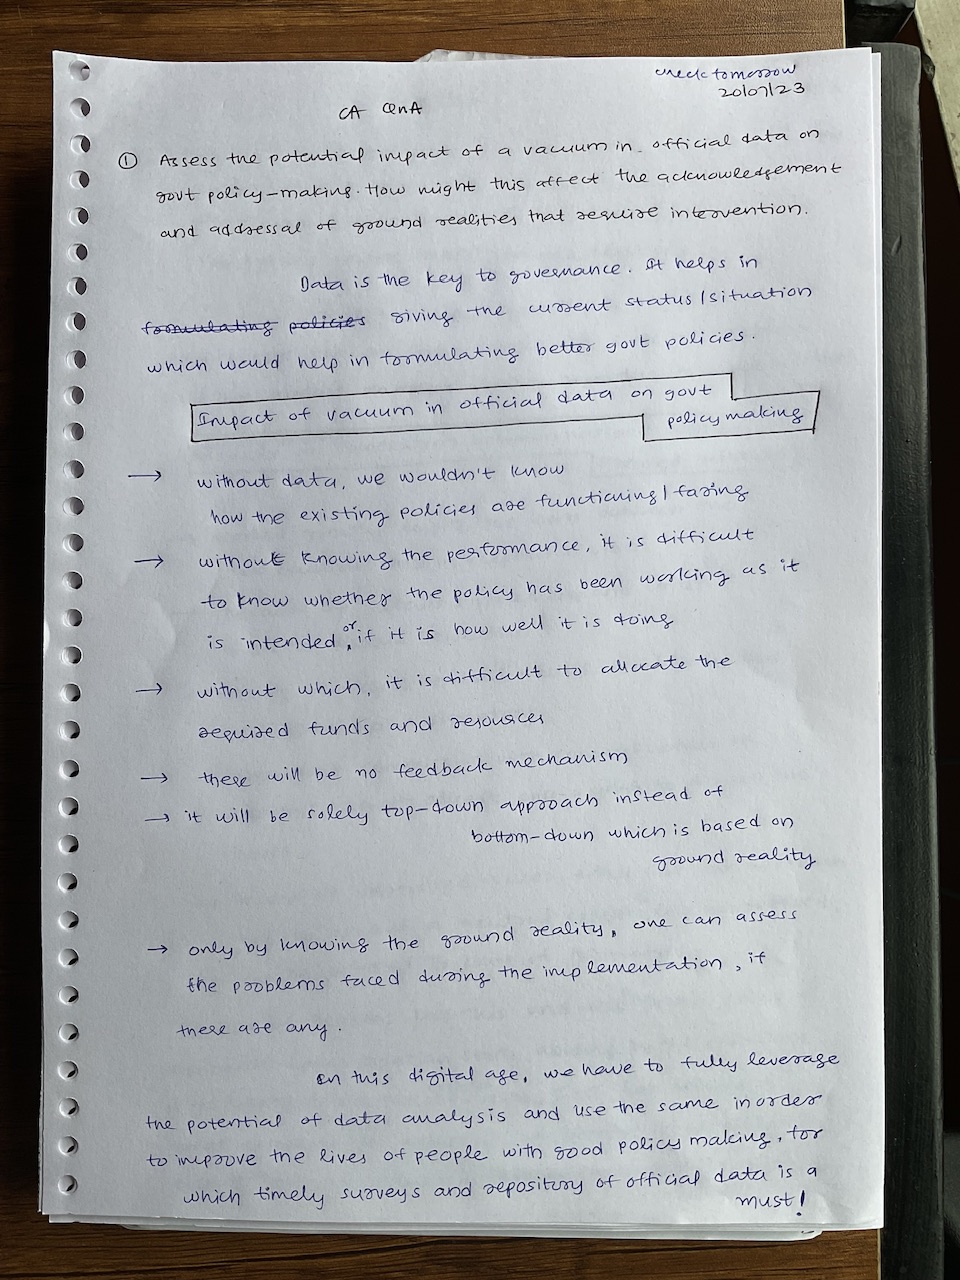 check tomorrow
20/07/23
CA QnA
① Assess the potential impact of a vacuum in official data on
govt policy-making. How might this affect the acknowledgement
and addressal of ground realities that require intervention.
Data is the key to governance. It helps in
formulating policies giving the current status / situation
which would help in formulating better govt policies.
Impact of vacuum in official data on govt
policymaking
→ without data, we wouldn't know
how the existing policies are functioning / faring
→ without knowing the performance, it is difficult
to know whether the policy has been working as it
is intended, or if it is how well it is doing
→ without which, it is difficult to allocate the
required funds and resources
→ there will be no feedback mechanism
→ it will be solely top-down approach instead of
bottom-down which is based on
ground reality
→ only by knowing the ground reality, one can assess
the problems faced during the implementation, if
there are any.
In this digital age, we have to fully leverage
the potential of data analysis and use the same in order
to improve the lives of people with good policy making, for
which timely surveys and repository of official data is a
must!